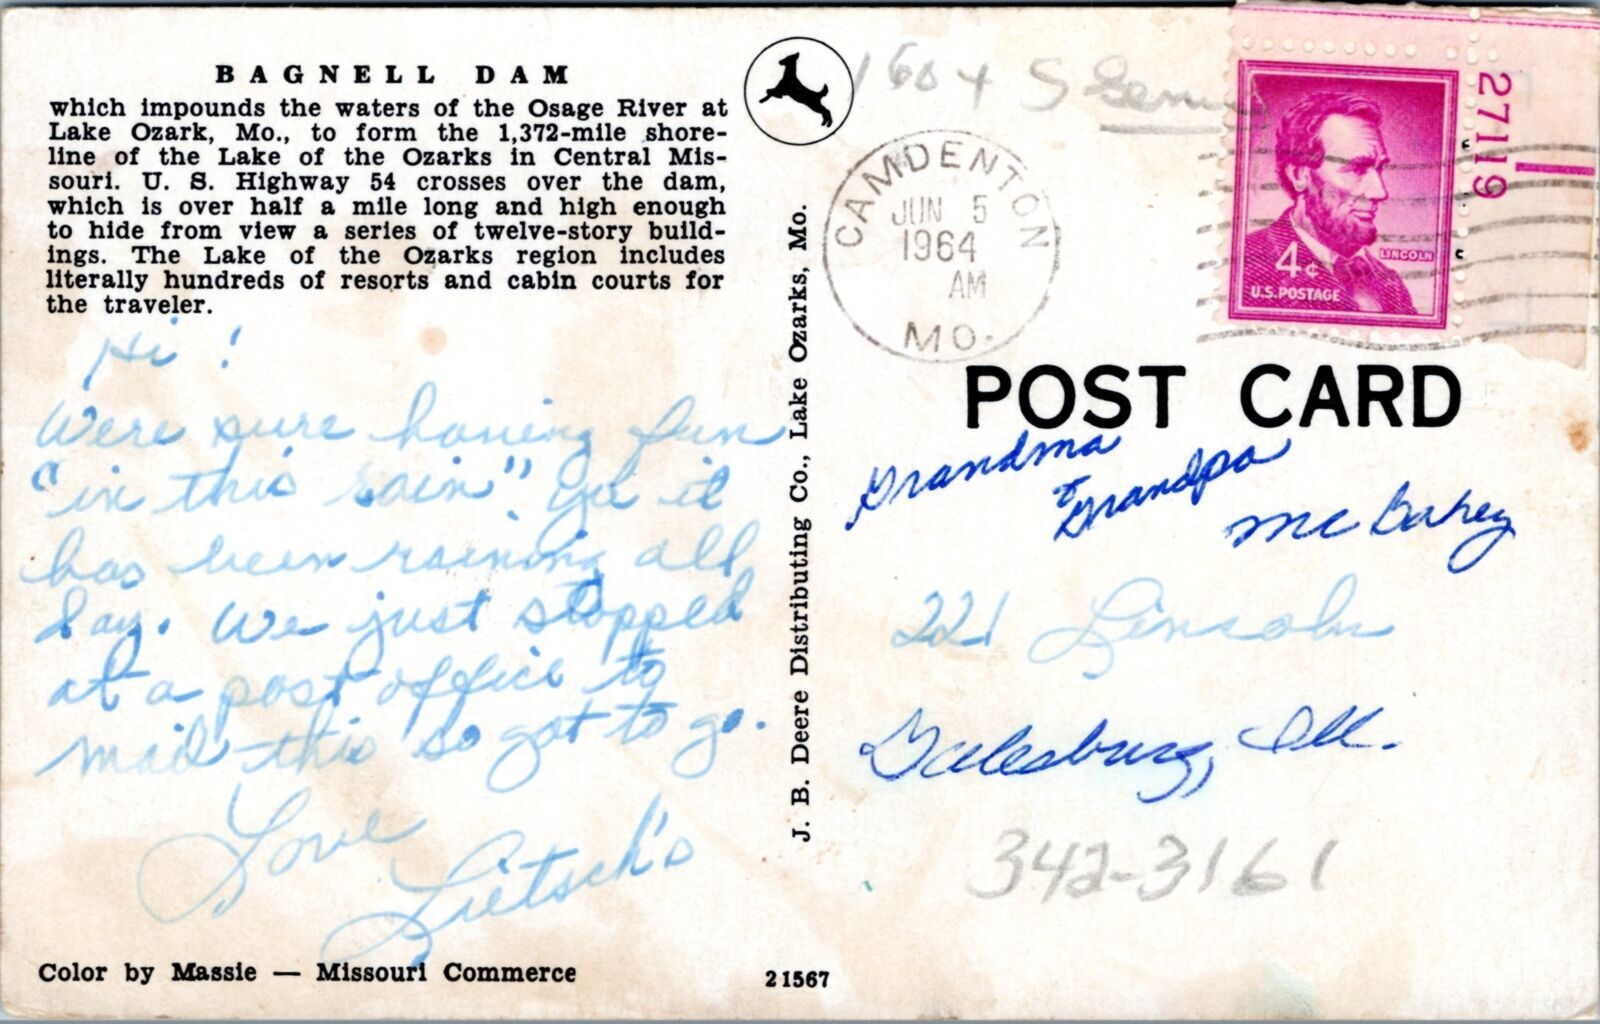 BAGNELL DAM
which impounds the waters of the Osage River at
Lake Ozark, Mo., to form the 1,372-mile shore-
line of the Lake of the Ozarks in Central Mis-
souri. U. S. Highway 54 crosses over the dam,
which is over half a mile long and high enough
to hide from view a series of twelve-story build-
ings. The Lake of the Ozarks region includes
literally hundreds of resorts and cabin courts for
the traveler.
Hi !
Were sure having fun
"in this rain". Yes it
has been raining all
day. We just stopped
at a post office to
mail this so got to go.
Love
Lietsch's
Color by Massie — Missouri Commerce
21567
J. B. Deere Distributing Co., Lake Ozarks, Mo.
1604 S
CAMDENTON
JUN 5
1964
AM
MO.
27119
4¢
LINCOLN
U.S. POSTAGE
POST CARD
Grandma
& Grandpa
221 Lincoln
Galesburg, Ill.
342-3161